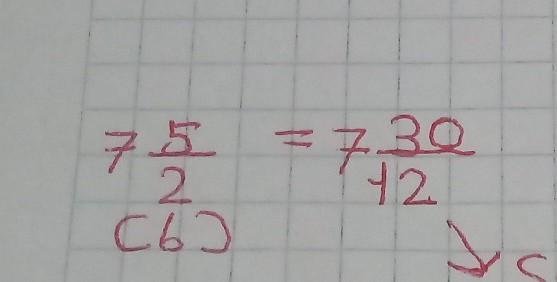 7 5/2 = 7 30/12
(6)